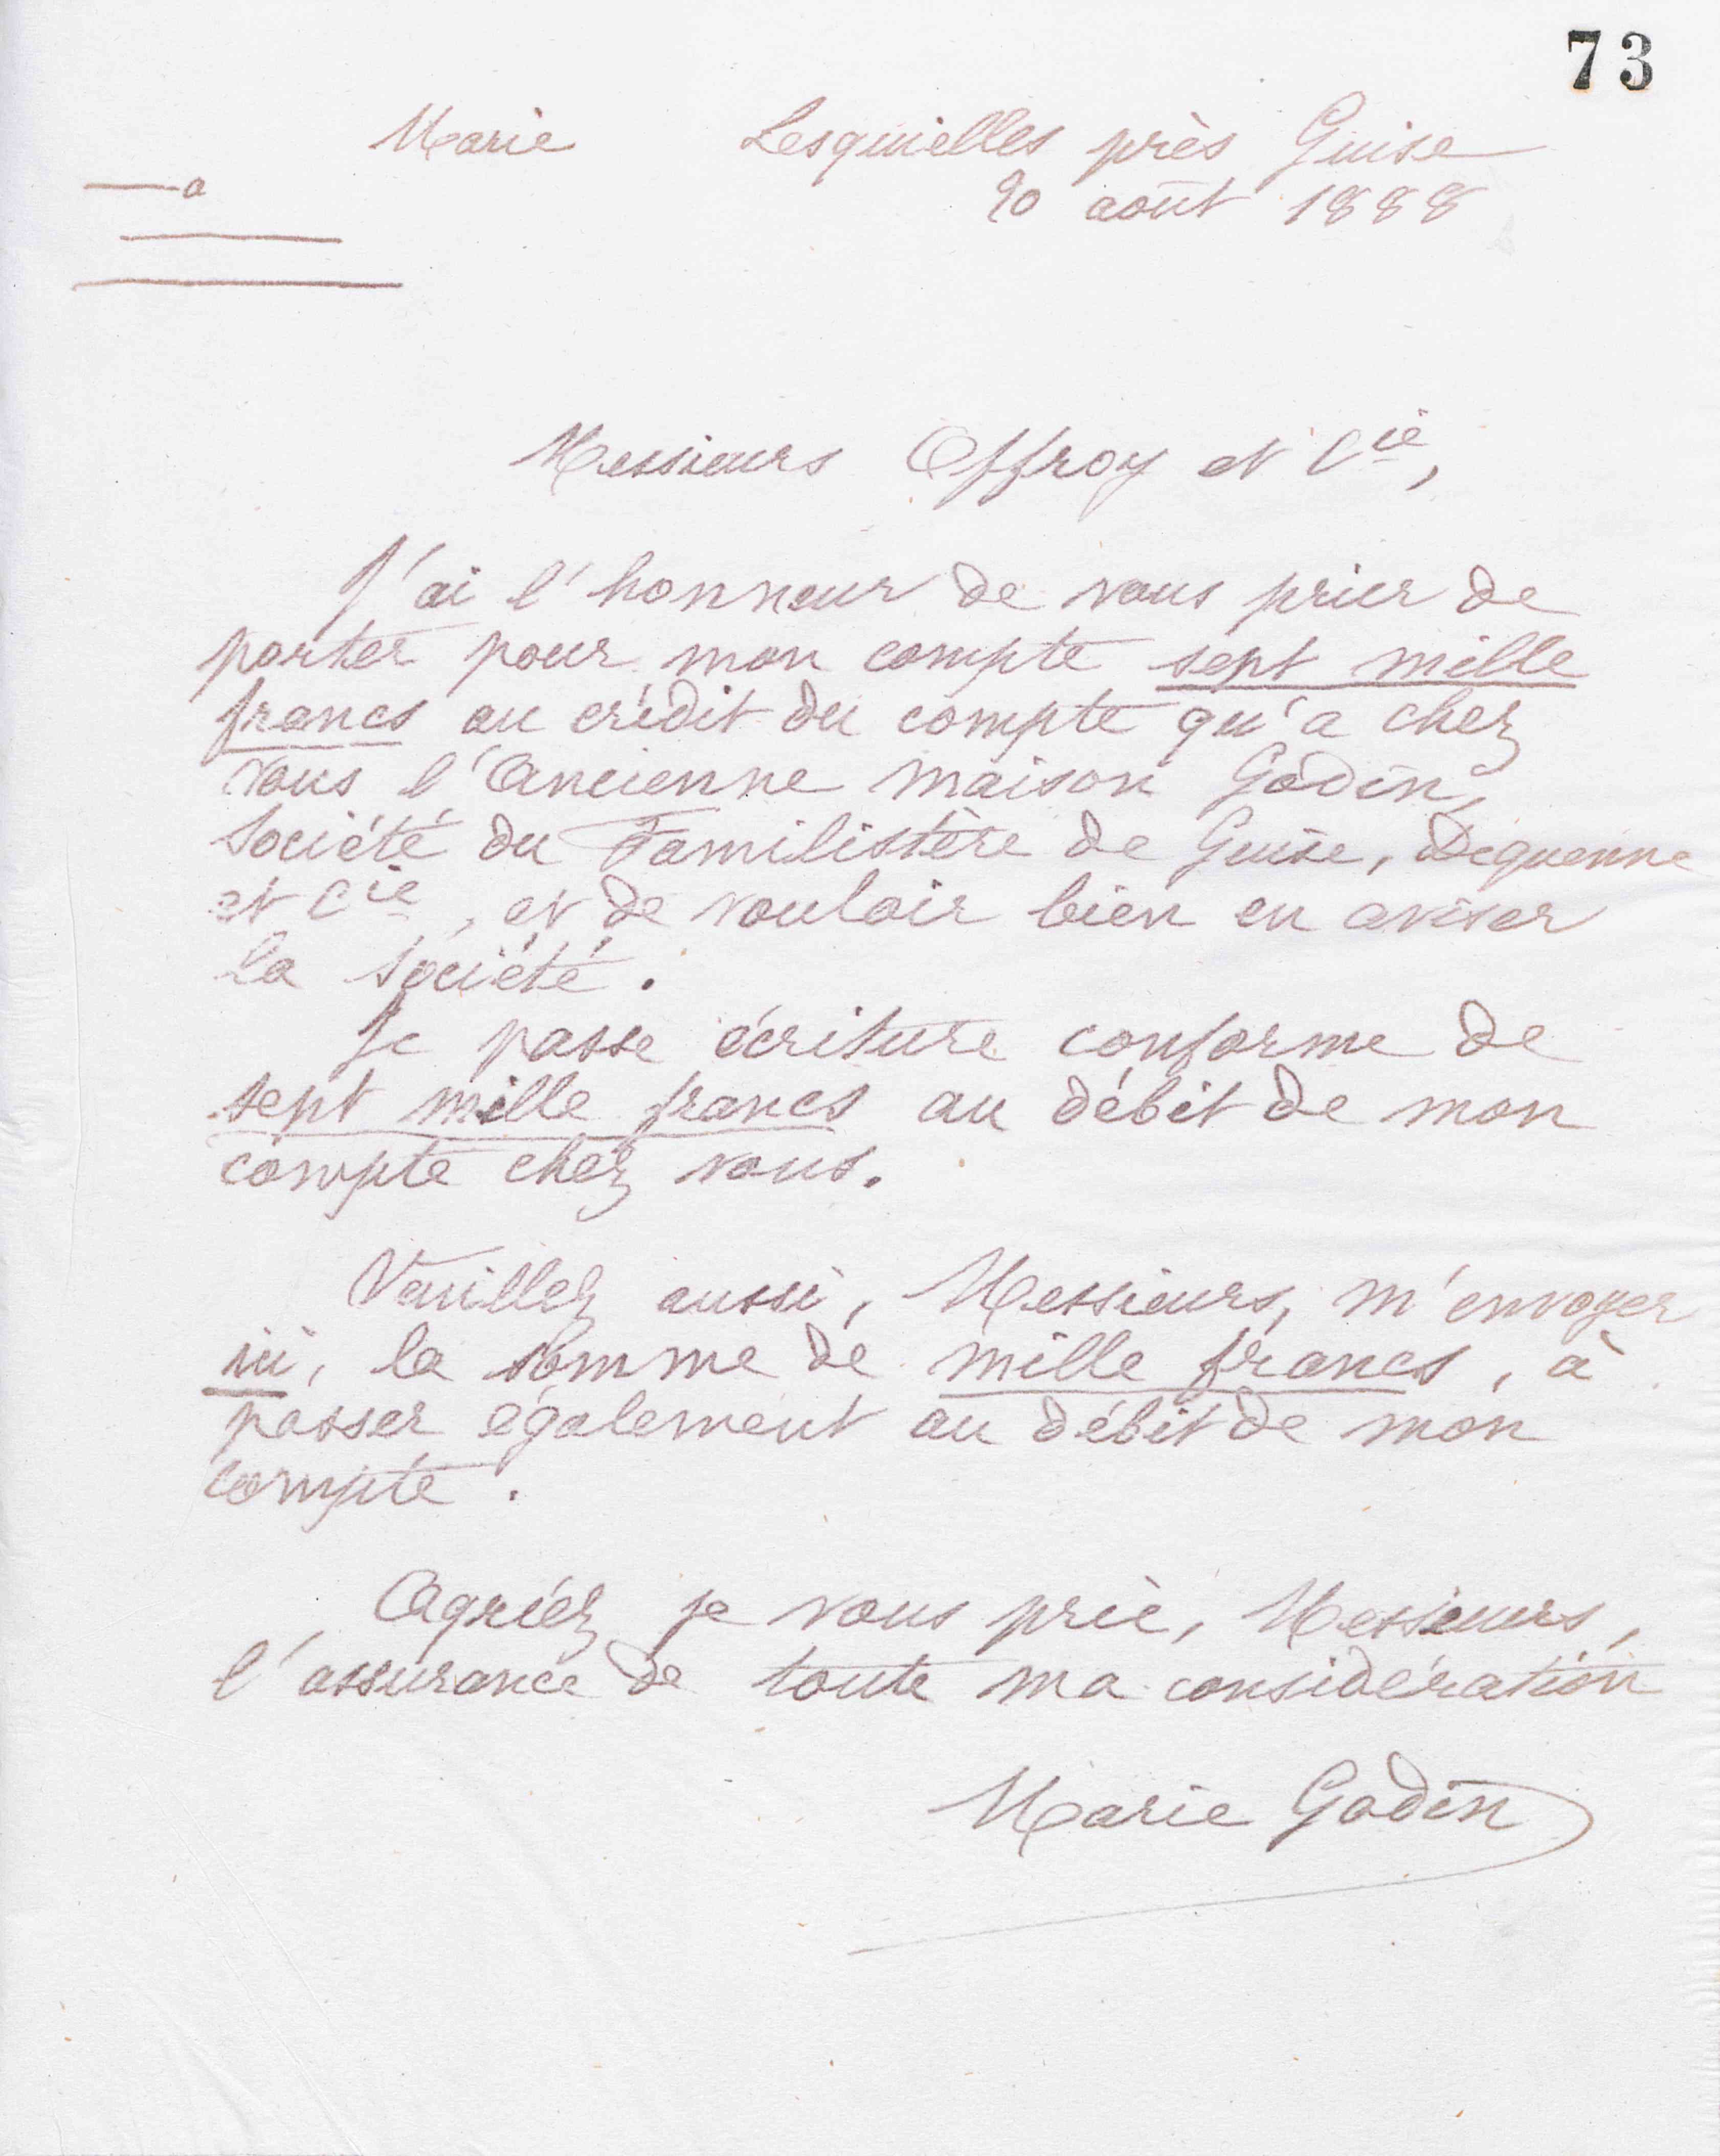 73
Marie Lesquielles près Guise
20 août 1888
a
Messieurs Offroy et Cie,
J'ai l'honneur de vous prier de
porter pour mon compte sept mille
francs au crédit du compte qu'a chez
vous l'Ancienne maison Godin,
Société du Familistère de Guise, Dequenne
et Cie, et de vouloir bien en aviser
la Société.
Je passe écriture conforme de
sept mille francs au débit de mon
compte chez vous.
Veuillez aussi, Messieurs, m'envoyer
ici, la somme de mille francs, à
passer également au débit de mon
compte.
Agréez, je vous prie, Messieurs,
l'assurance de toute ma considération
Marie Godin